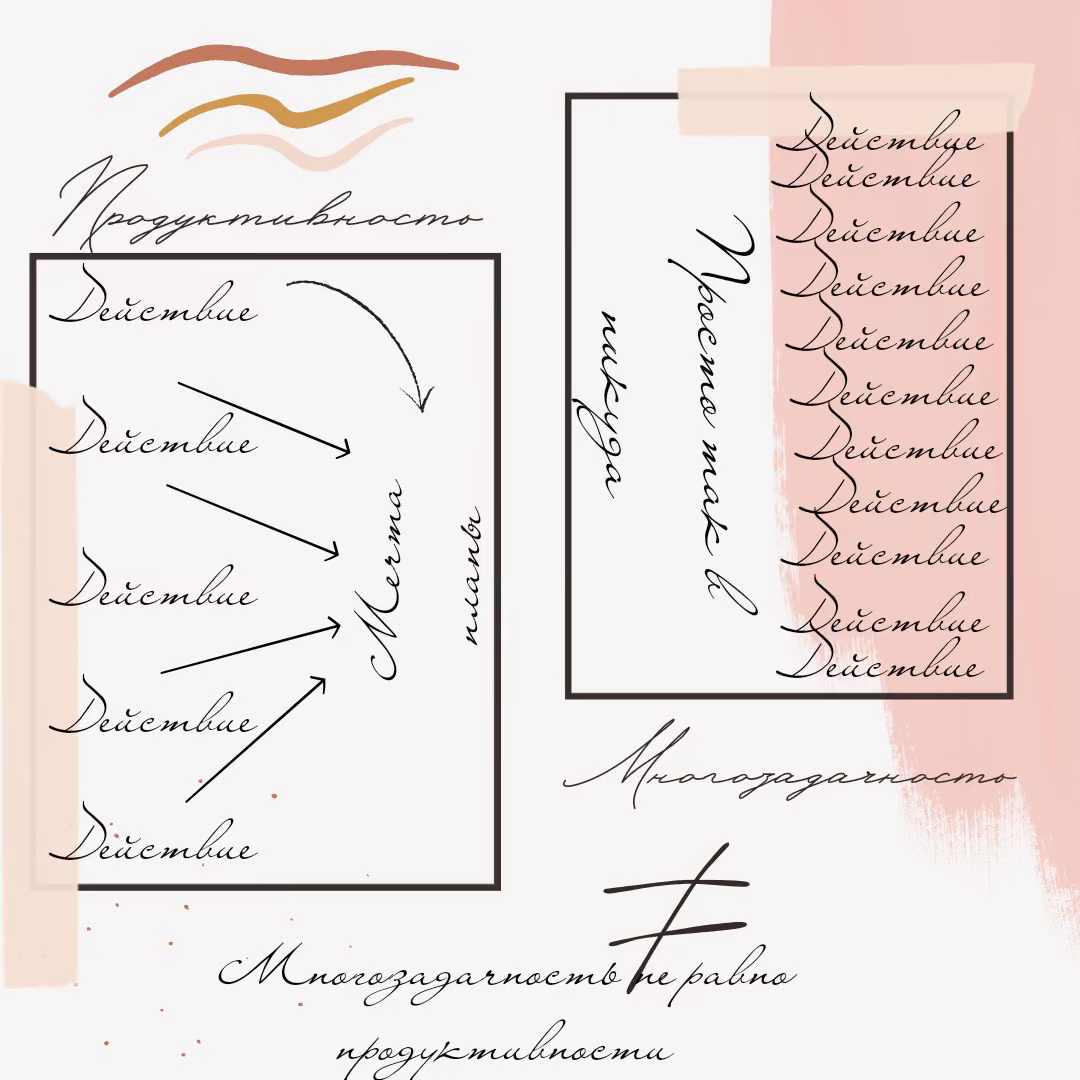 Продуктивность
Действие
Действие
Действие
Действие
Действие
Мечта
планы
Действие
Действие
Действие
Действие
Действие
Действие
Действие
Действие
Действие
Действие
Действие
Просто так в
никуда
Многозадачность
≠
Многозадачность не равно
продуктивности